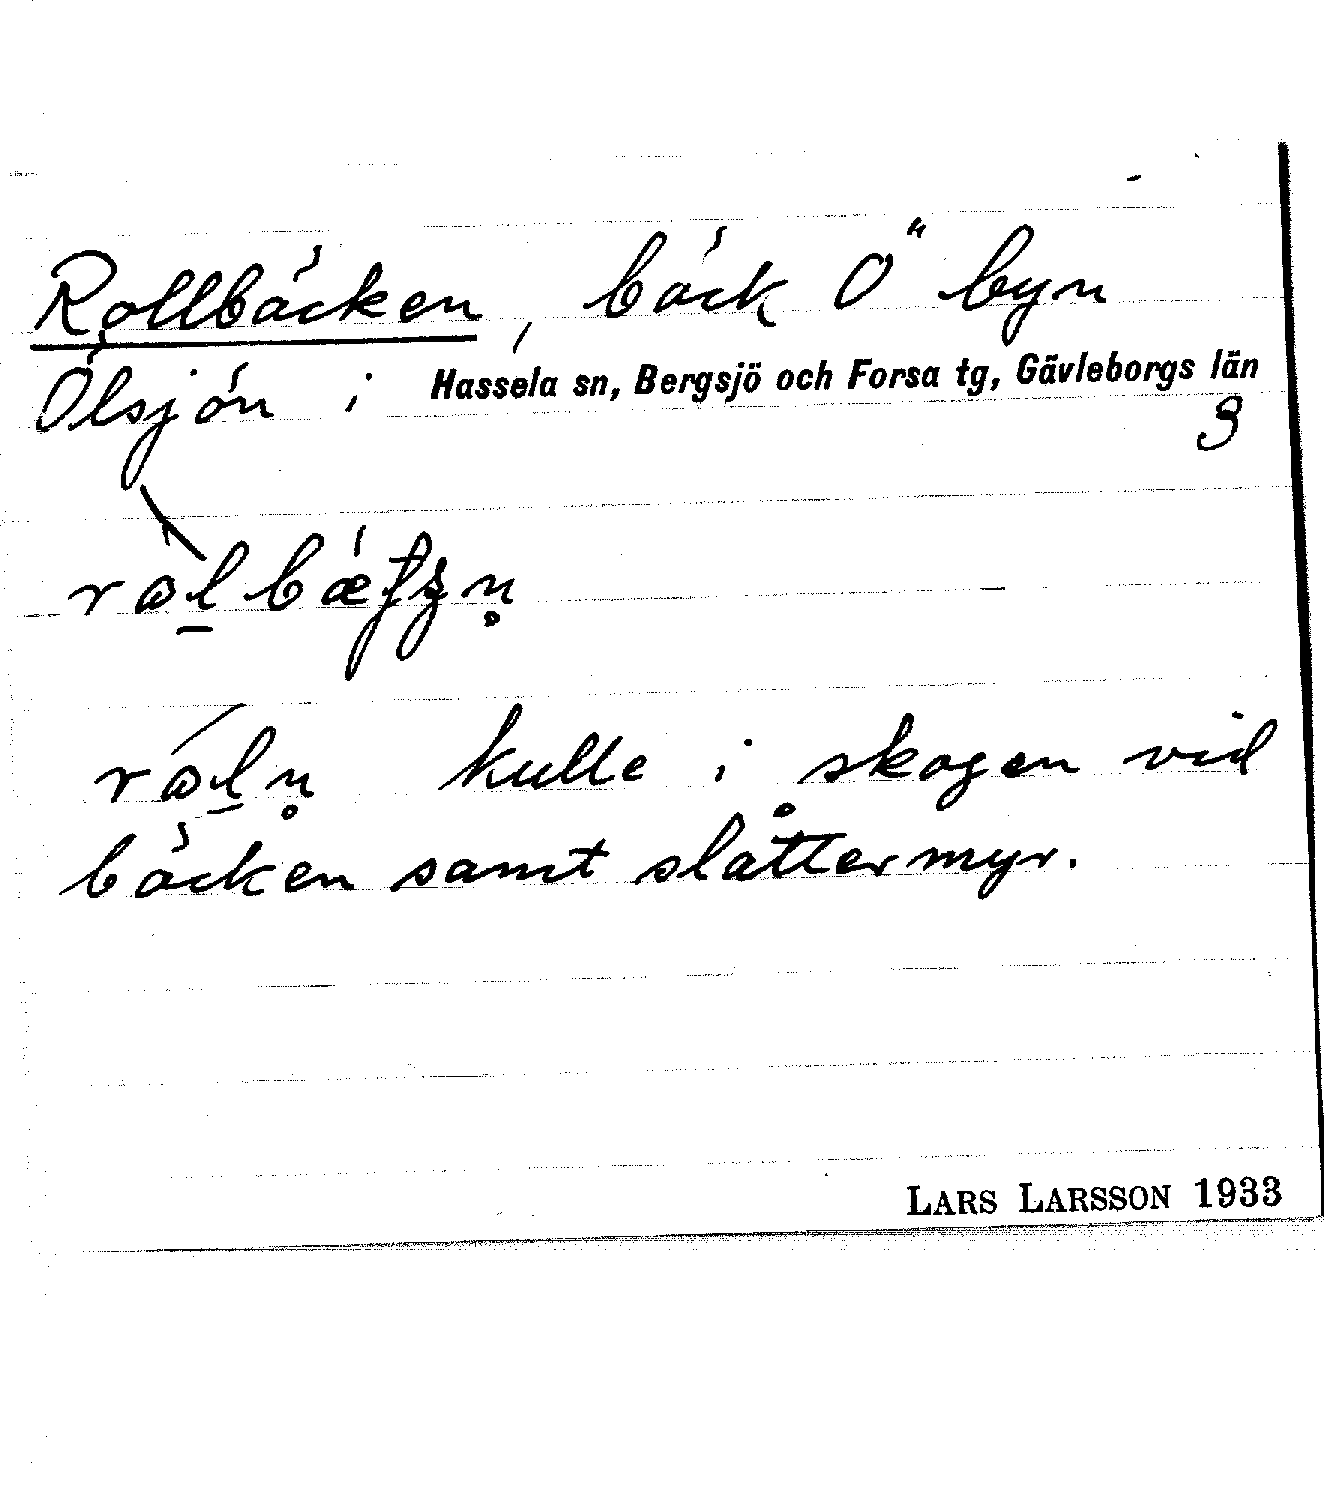 Rollbäcken, bäck Ö byn
Ölsjön i Hassela sn, Bergsjö och Forsa tg, Gävleborgs län
3
kulle i skogen vid
bäcken samt slåttermyr.
LARS LARSSON 1933